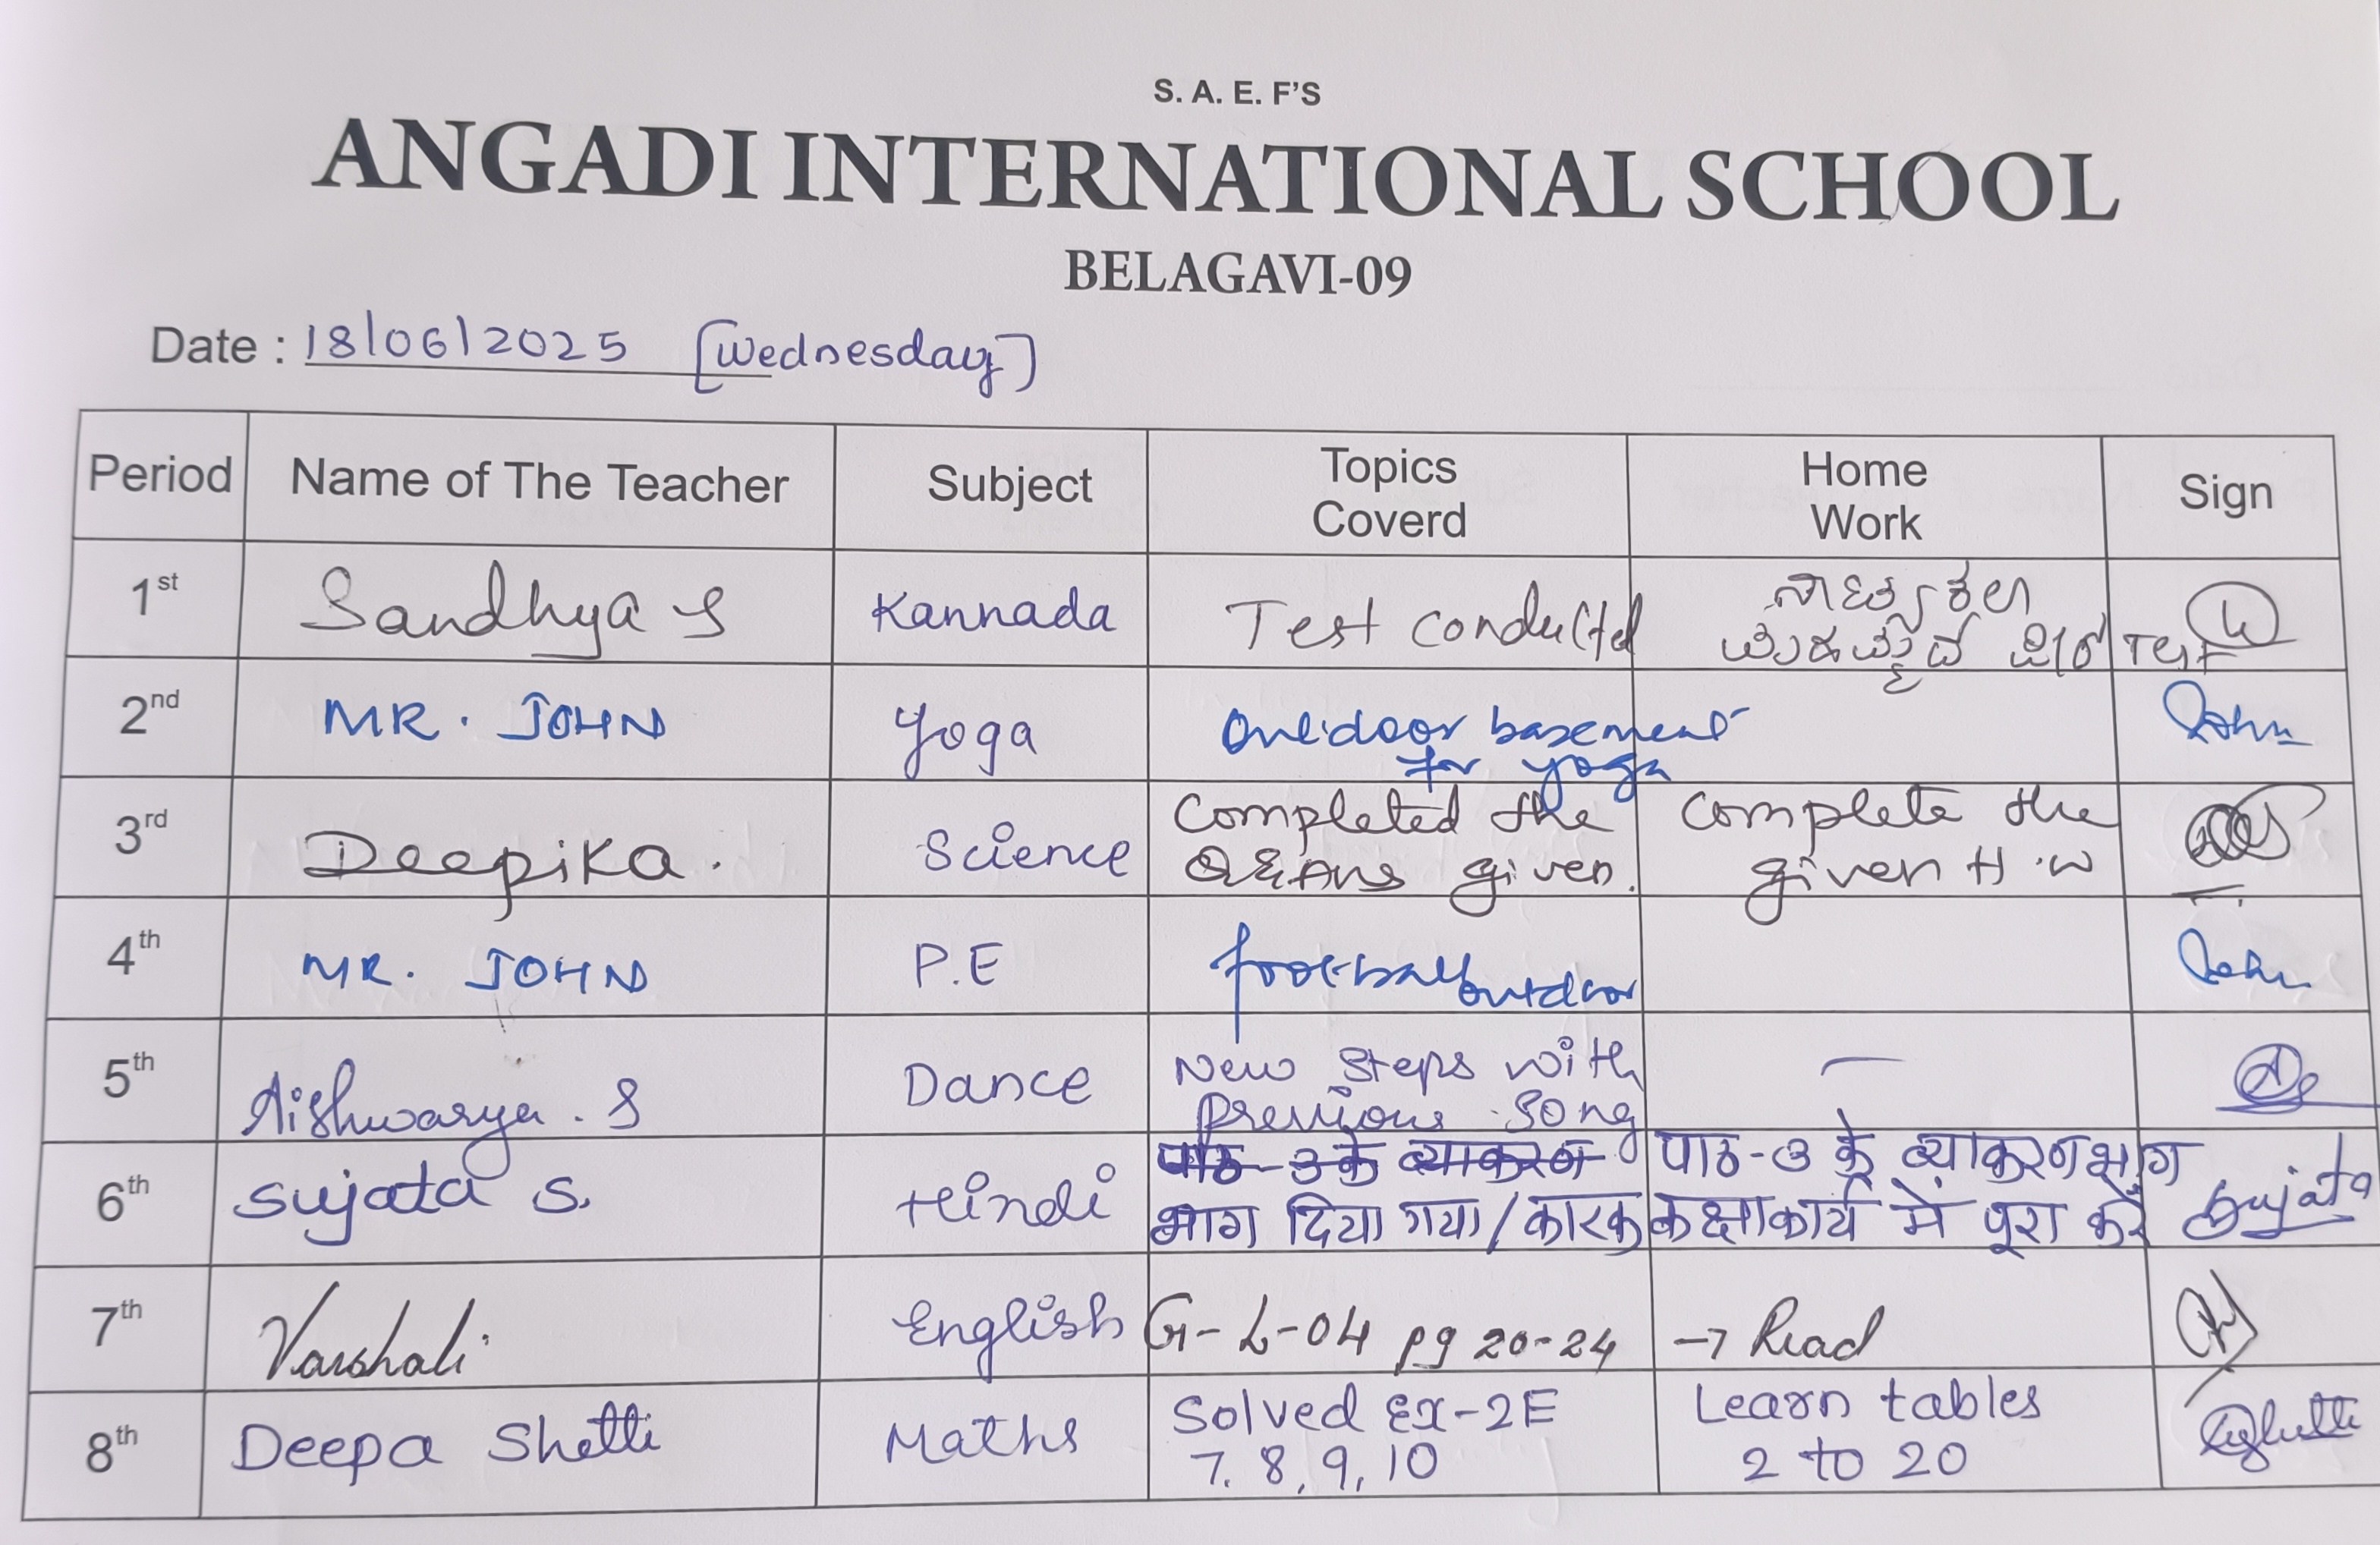 S. A. E. F'S
ANGADI INTERNATIONAL SCHOOL
BELAGAVI-09
Date : 18/06/2025 [Wednesday]
Period Name of The Teacher Subject Topics Coverd Home Work Sign
1st Sandhya S Kannada Test conducted Test
2nd MR. JOHN Yoga basement for yoga John
3rd Deepika. Science Completed the Q&Ans given. Complete the given H.W
4th MR. JOHN P.E football outdoor John
5th Aishwarya. S Dance New Steps with previous song —
6th Sujata S. Hindi पाठ-3 के व्याकरण भाग दिया गया/कारक पाठ-3 के व्याकरण भाग कक्षाकार्य में पूरा करें Sujata
7th Varshali. English Gr-L-04 pg 20-24 → Read
8th Deepa Shetti Maths Solved Ex-2E 7, 8, 9, 10 Learn tables 2 to 20